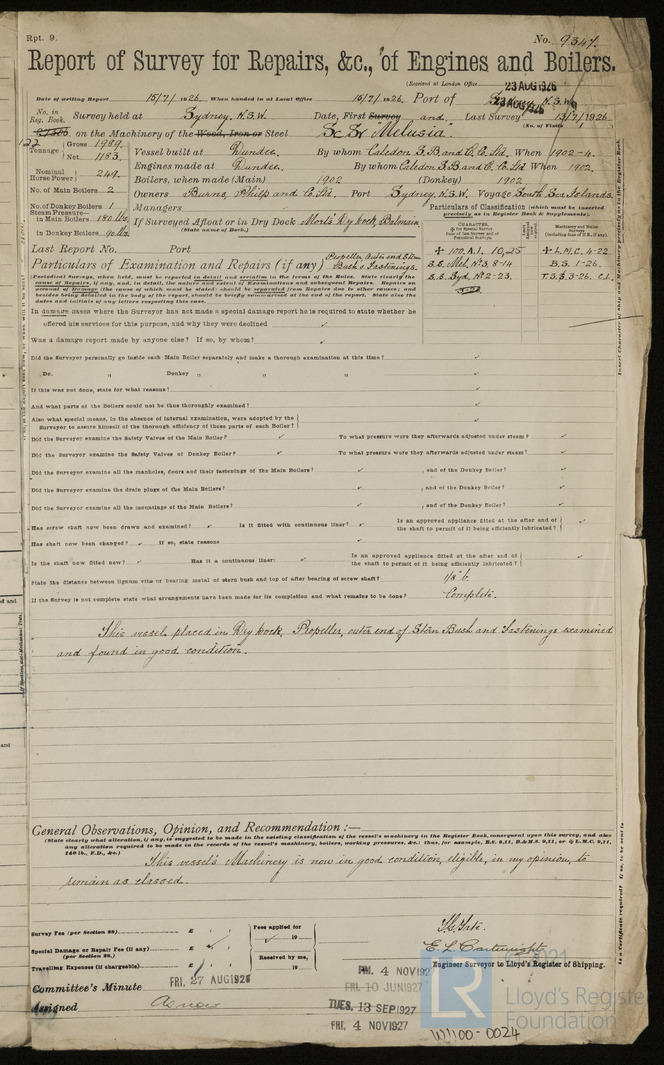 Rpt. 9.
No. 9347.
Report of Survey for Repairs, &c., of Engines and Boilers.
(Received at London Office
23 AUG 1926
Date of writing Report 15/7/1926. When handed in at Local Office 15/7/1926. Port of Sydney N.S.W.
23 AUG 1926
No. in Reg. Book. Survey held at Sydney. N.S.W. Date, First Survey and Last Survey 13/7/1926.
(No. of Visits
on the Machinery of the Wood, Iron or Steel Sc Sr "Melusia".
Tonnage Gross 1989. Net 1183.
Vessel built at Dundee. By whom Caledon S.B. and E. Co. Ltd. When 1902-4.
Engines made at Dundee. By whom Caledon S.B. and E. Co. Ltd When 1902.
Nominal Horse Power 249.
Boilers, when made (Main) 1902 (Donkey) 1902
No. of Main Boilers 2
Owners Burns, Philp and Co. Ltd. Port Sydney, N.S.W. Voyage South Sea Islands.
No. of Donkey Boilers 1
Managers
Steam Pressure in Main Boilers 180 lbs.
If Surveyed Afloat or in Dry Dock Mort's Dry Dock, Balmain.
(State name of Dock.)
in Donkey Boilers 90 lbs.
Particulars of Classification (which must be inserted precisely as in Register Book & Supplements).
CHARACTER.
Machinery and Boiler Surveys
100. A.1. 10,25 L.M.C. 4-22
S.S. Mel, No. 3. 8-14 B.S. 1-26.
S.S. Syd, No. 2-23. T.S. 3-26. C.L.
Last Report No. Port
Particulars of Examination and Repairs (if any) Propeller, Outer end Stern Bush & Fastenings.
(Periodical Surveys, when held, must be reported in detail and seriatim in the terms of the Rules. State clearly the cause of Repairs, if any, and, in detail, the nature and extent of Examinations and subsequent Repairs. Repairs on account of Damage (the cause of which must be stated) should be separated from Repairs due to other causes; and besides being detailed in the body of the report, should be briefly summarised at the end of the report. State also the dates and initials of any letters respecting this case.
In damage cases where the Surveyor has not made a special damage report he is required to state whether he
offered his services for this purpose, and why they were declined ✓
Was a damage report made by anyone else? If so, by whom? ✓
Did the Surveyor personally go inside each Main Boiler separately and make a thorough examination at this time? ✓
Do. " Donkey " " " ✓
If this was not done, state for what reasons? ✓
And what parts of the Boilers could not be thoroughly examined? ✓
Also what special means, in the absence of internal examination, were adopted by the
Surveyor to assure himself of the thorough efficiency of these parts of each Boiler? ✓
Did the Surveyor examine the Safety Valves of the Main Boiler? ✓ To what pressure were they afterwards adjusted under steam? ✓
Did the Surveyor examine the Safety Valves of Donkey Boiler? ✓ To what pressure were they afterwards adjusted under steam? ✓
Did the Surveyor examine all the manholes, doors and their fastenings of the Main Boilers? ✓ , and of the Donkey Boiler? ✓
Did the Surveyor examine the drain plugs of the Main Boilers? ✓ , and of the Donkey Boiler? ✓
Did the Surveyor examine all the mountings of the Main Boilers? ✓ , and of the Donkey Boiler? ✓
Has screw shaft now been drawn and examined? ✓ Is it fitted with continuous liner? ✓ Is an approved appliance fitted at the after end of the shaft to permit of it being efficiently lubricated? ✓
Has shaft now been changed? ✓ If so, state reasons ✓
Is the shaft now fitted new? ✓ Has it a continuous liner: ✓ Is an approved appliance fitted at the after end of the shaft to permit of it being efficiently lubricated? ✓
State the distance between lignum vitæ or bearing metal of stern bush and top of after bearing of screw shaft? 1/8" b.
If the Survey is not complete state what arrangements have been made for its completion and what remains to be done? Complete.
This vessel placed in Dry Dock, Propeller, outer end of Stern Bush and Fastenings examined
and found in good condition.
General Observations, Opinion, and Recommendation :—
(State clearly what alteration, if any, is suggested to be made in the existing classification of the vessel's machinery in the Register Book, consequent upon this survey, and also any alteration required to be made in the records of the vessel's machinery, boilers, working pressures, &c.: thus, for example, B.S. 9,11, B.&M.S. 9,11, or L.M.C. 9,11, 140 lb., F.D., &c.)
This vessel's Machinery is now in good condition, eligible, in my opinion, to
remain as classed.
Survey Fee (per Section 29) £ : :
Special Damage or Repair Fee (if any) (per Section 29.) £ : :
Travelling Expenses (if chargeable) £ : :
Fees applied for 19
Received by me, 19
E. L. Cartwright
Engineer Surveyor to Lloyd's Register of Shipping.
Committee's Minute FRI. 27 AUG 1926
FRI. 4 NOV 1927
FRI. 10 JUN 1927
TUES. 13 SEP 1927
FRI. 4 NOV 1927
Assigned As now
© 2021
LR Lloyd's Register Foundation
W1100-0024